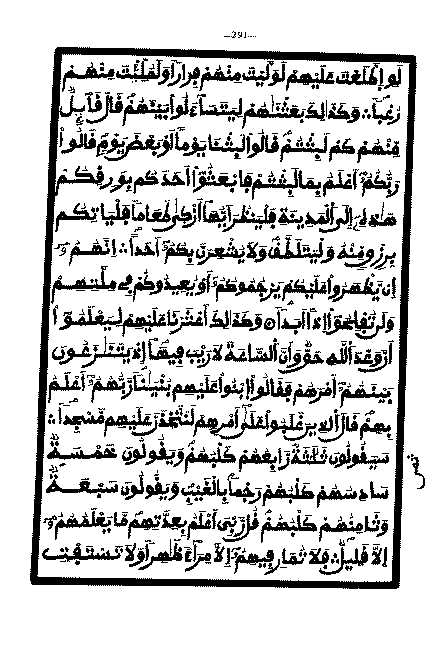 —291—
لَوِ اِطَّلَعْتَ عَلَيْهِمْ لَوَلَّيْتَ مِنْهُمْ فِرَاراً وَلَمُلِّئْتَ مِنْهُمْ
رُعْباً وَكَذَٰلِكَ بَعَثْنَٰهُمْ لِيَتَسَآءَلُوا۟ بَيْنَهُمْ قَالَ قَآئِلٌ
مِّنْهُمْ كَمْ لَبِثْتُمْ قَالُوا۟ لَبِثْنَا يَوْماً أَوْ بَعْضَ يَوْمٍ قَالُوا۟
رَبُّكُمْ أَعْلَمُ بِمَا لَبِثْتُمْ فَابْعَثُوٓا۟ أَحَدَكُم بِوَرِقِكُمْ
هَٰذِهِۦٓ إِلَى اَلْمَدِينَةِ فَلْيَنظُرْ أَيُّهَآ أَزْكَىٰ طَعَاماً فَلْيَاتِكُم
بِرِزْقٍ مِّنْهُ وَلْيَتَلَطَّفْ وَلَا يُشْعِرَنَّ بِكُمْ أَحَداً اِنَّهُمْ
إِنْ يَّظْهَرُوا۟ عَلَيْكُمْ يَرْجُمُوكُمْ أَوْ يُعِيدُوكُمْ فِے مِلَّتِهِمْ
وَلَن تُفْلِحُوٓا۟ إِذاً اَبَداً وَكَذَٰلِكَ أَعْثَرْنَا عَلَيْهِمْ لِيَعْلَمُوٓا۟
أَنَّ وَعْدَ اَللَّهِ حَقٌّ وَأَنَّ اَلسَّاعَةَ لَا رَيْبَ فِيهَآ إِذْ يَتَنَٰزَعُونَ
بَيْنَهُمْ أَمْرَهُمْ فَقَالُوا۟ اُبْنُوا۟ عَلَيْهِم بُنْيَٰناً رَّبُّهُمْ أَعْلَمُ
بِهِمْ قَالَ اَلذِينَ غَلَبُوا۟ عَلَىٰٓ أَمْرِهِمْ لَنَتَّخِذَنَّ عَلَيْهِم مَّسْجِداً
سَيَقُولُونَ ثَلَٰثَةٌ رَّابِعُهُمْ كَلْبُهُمْ وَيَقُولُونَ خَمْسَةٌ
سَادِسُهُمْ كَلْبُهُمْ رَجْماً بِالْغَيْبِ وَيَقُولُونَ سَبْعَةٌ
وَثَامِنُهُمْ كَلْبُهُمْ قُل رَّبِّىَ أَعْلَمُ بِعِدَّتِهِم مَّا يَعْلَمُهُمْ
إِلَّا قَلِيلٌ فَلَا تُمَارِ فِيهِمْ إِلَّا مِرَآءً ظَٰهِراً وَلَا تَسْتَفْتِ